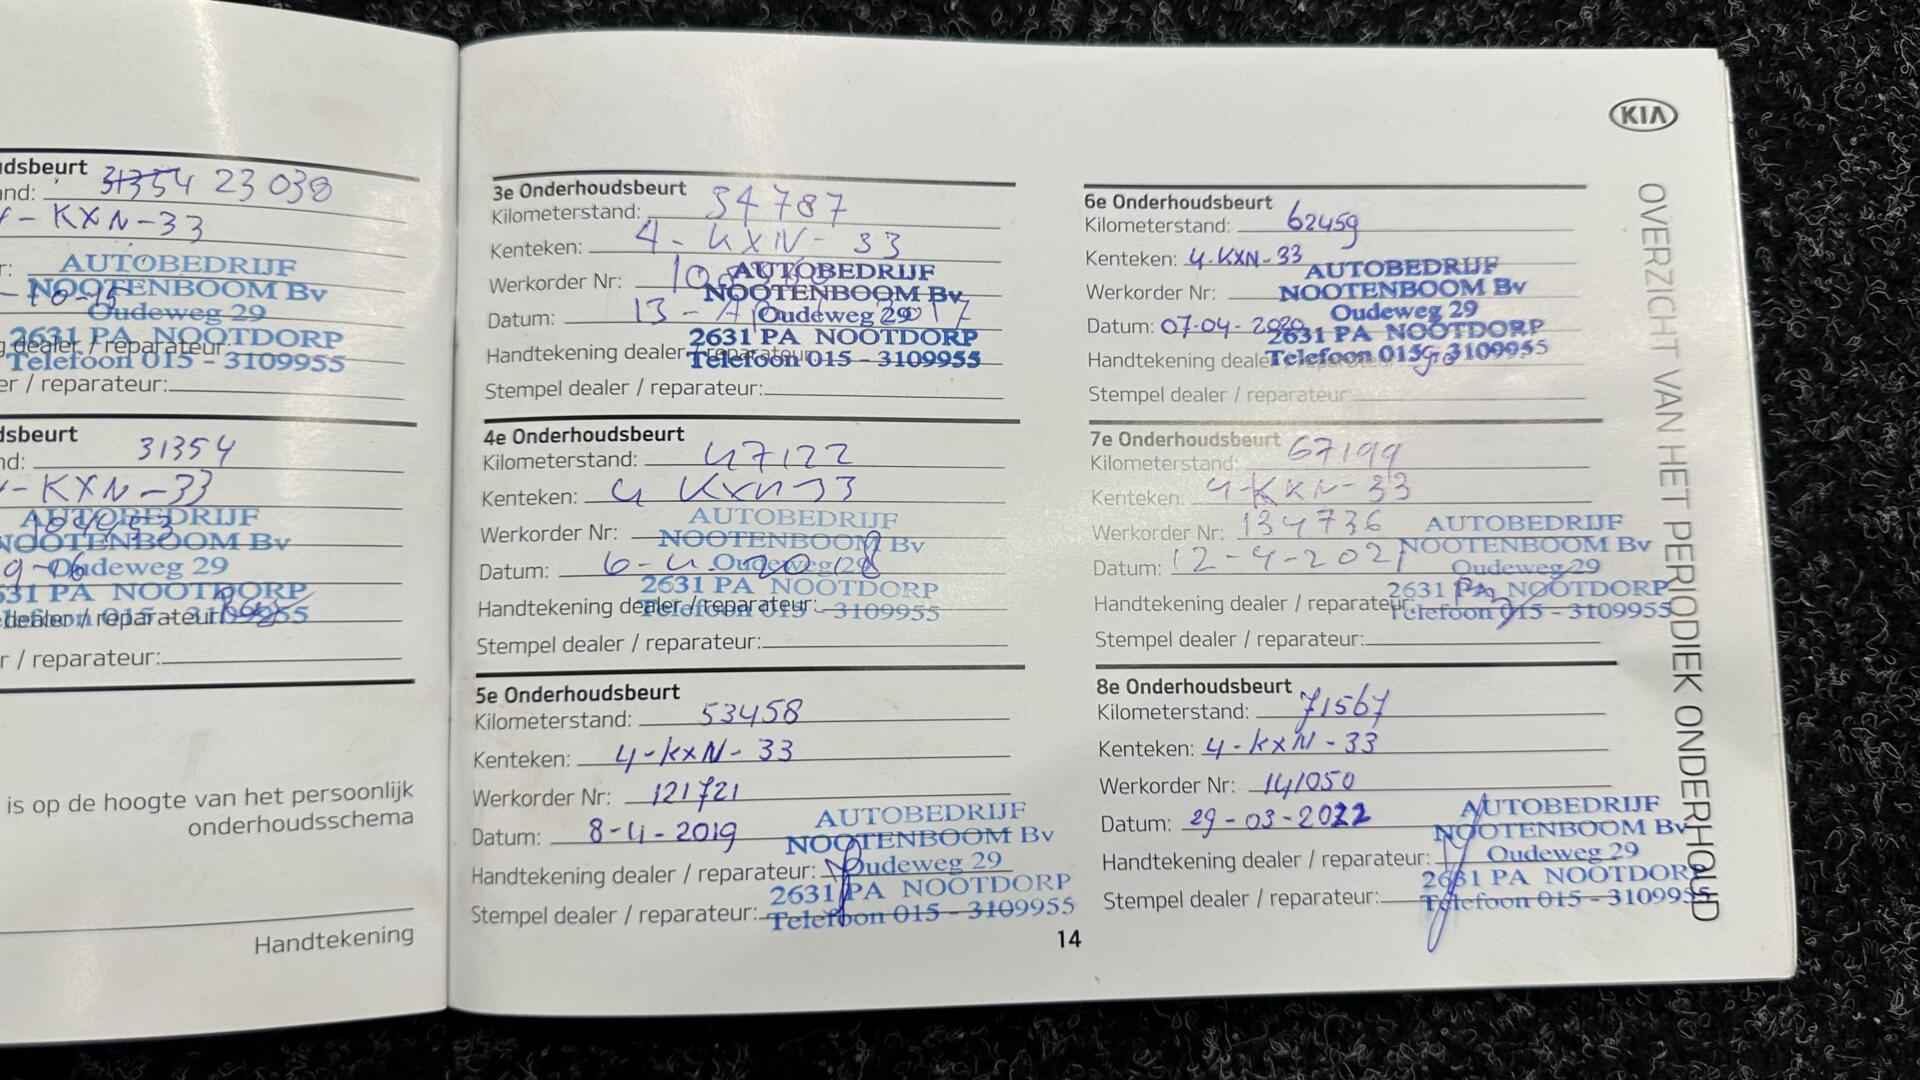 dsbeurt 31354 23 038
nd:
- KXN-33
r: AUTOBEDRIJF
NOOTENBOOM Bv
-10-15
Oudeweg 29
2631 PA NOOTDORP
g dealer / reparateur:
Telefoon 015 - 3109955
er / reparateur:
dsbeurt
nd: 31354
-KXN-33
AUTOBEDRIJF
NOOTENBOOM Bv
Oudeweg 29
2631 PA NOOTDORP
dealer / reparateur
Telefoon 015 - 3109955
r / reparateur:
is op de hoogte van het persoonlijk
onderhoudsschema
Handtekening
3e Onderhoudsbeurt
Kilometerstand: 34787
Kenteken: 4-KXN-33
Werkorder Nr:
AUTOBEDRIJF
NOOTENBOOM Bv
Datum: 13-
Oudeweg 29
2631 PA NOOTDORP
Handtekening dealer / reparateur
Telefoon 015 - 3109955
Stempel dealer / reparateur:
4e Onderhoudsbeurt
Kilometerstand: 47122
Kenteken: 4 KXN-33
Werkorder Nr:
AUTOBEDRIJF
NOOTENBOOM Bv
Datum: 6-4-2018
Oudeweg 29
2631 PA NOOTDORP
Handtekening dealer / reparateur:
Telefoon 015 - 3109955
Stempel dealer / reparateur:
5e Onderhoudsbeurt
Kilometerstand: 53458
Kenteken: 4-KXN-33
Werkorder Nr: 121721
AUTOBEDRIJF
Datum: 8-4-2019
NOOTENBOOM Bv
Handtekening dealer / reparateur:
Oudeweg 29
2631 PA NOOTDORP
Stempel dealer / reparateur:
Telefoon 015 - 3109955
KIA
6e Onderhoudsbeurt
Kilometerstand: 62459
Kenteken: 4-KXN-33
AUTOBEDRIJF
Werkorder Nr:
NOOTENBOOM Bv
Oudeweg 29
Datum: 07-04-2020
2631 PA NOOTDORP
Handtekening deale
Telefoon 015 - 3109955
Stempel dealer / reparateur:
7e Onderhoudsbeurt
Kilometerstand: 67199
Kenteken: 4-KXN-33
Werkorder Nr: 134736
AUTOBEDRIJF
NOOTENBOOM Bv
Datum: 12-4-2021
Oudeweg 29
2631 PA NOOTDORP
Handtekening dealer / reparateur:
Telefoon 015 - 3109955
Stempel dealer / reparateur:
8e Onderhoudsbeurt
Kilometerstand: 71567
Kenteken: 4-KXN-33
Werkorder Nr: 141050
AUTOBEDRIJF
Datum: 29-03-2022
NOOTENBOOM Bv
Oudeweg 29
Handtekening dealer / reparateur:
2631 PA NOOTDORP
Stempel dealer / reparateur:
Telefoon 015 - 3109955
14
OVERZICHT VAN HET PERIODIEK ONDERHOUD